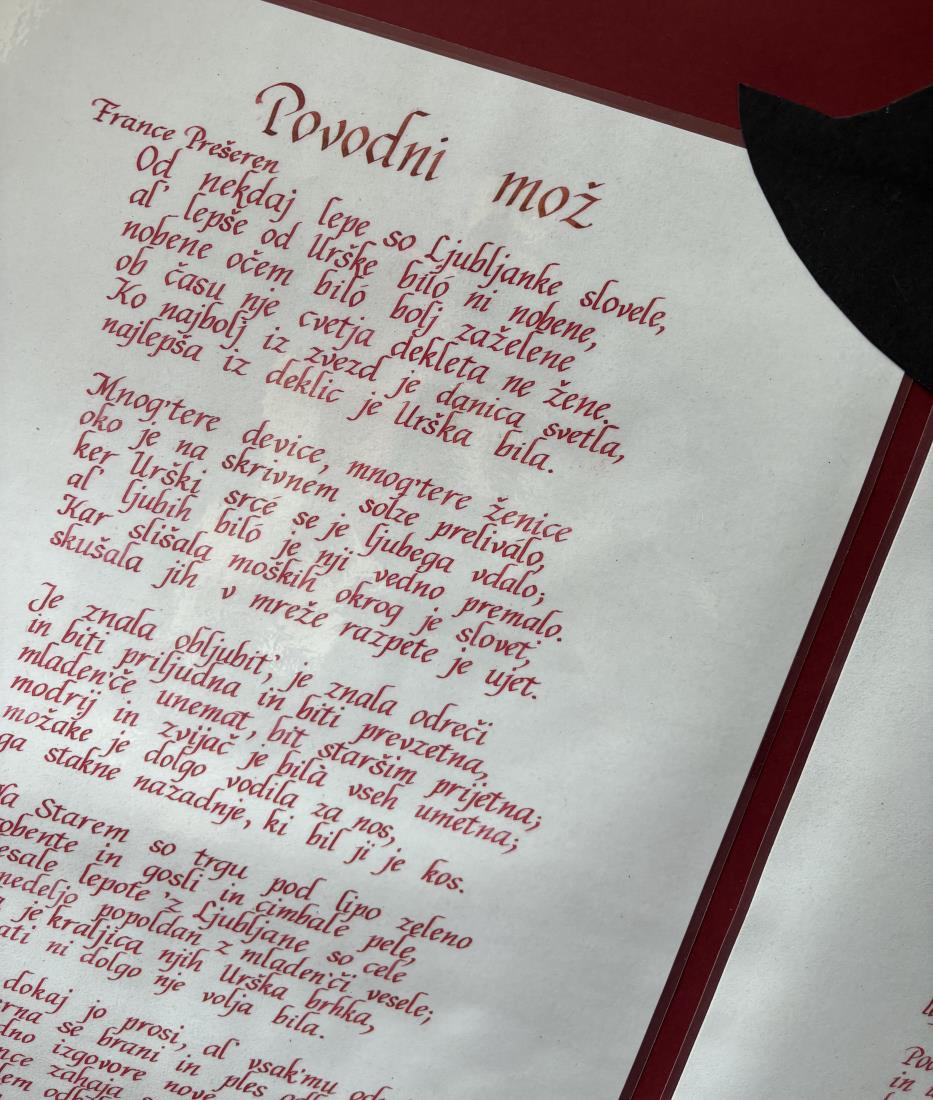 Povodni mož
France Prešeren
Od nekdaj lepe so Ljubljanke slovele,
al' lepše od Urške biló ni nobene,
nobene očem biló bolj zaželene
ob času nje cvetja dekleta ne žene.
Ko najbolj iz zvezd je danica svetla,
najlepša iz deklic je Urška bila.
Mnog'tere device, mnog'tere ženice
oko je na skrivnem solze prelivalo,
ker Urški srcé se je ljubega vdalo;
al' ljubih biló je nji vedno premalo.
Kar slišala moških okrog je slovet,
skušala jih v mreže razpete je ujet.
Je znala obljubit', je znala odreči
in biti priljudna in biti prevzetna,
mladen'če unemat, bit staršim prijetna;
modrij in zvijač je bila vseh umetna;
možake je dolgo vodila za nos,
ga stakne nazadnje, ki bil ji je kos.
Na Starem so trgu pod lipo zeleno
obente in gosli in cimbale pele,
esale lepote 'z Ljubljane so cele
nedeljo popoldan z mladen'či vesele;
je kraljica njih Urška brhka,
ati ni dolgo nje volja bila.
dokaj jo prosi, al' vsak'mu od
erna se brani in ples od
dno izgovore nove
nce zahaja
lem odb
Pod
in